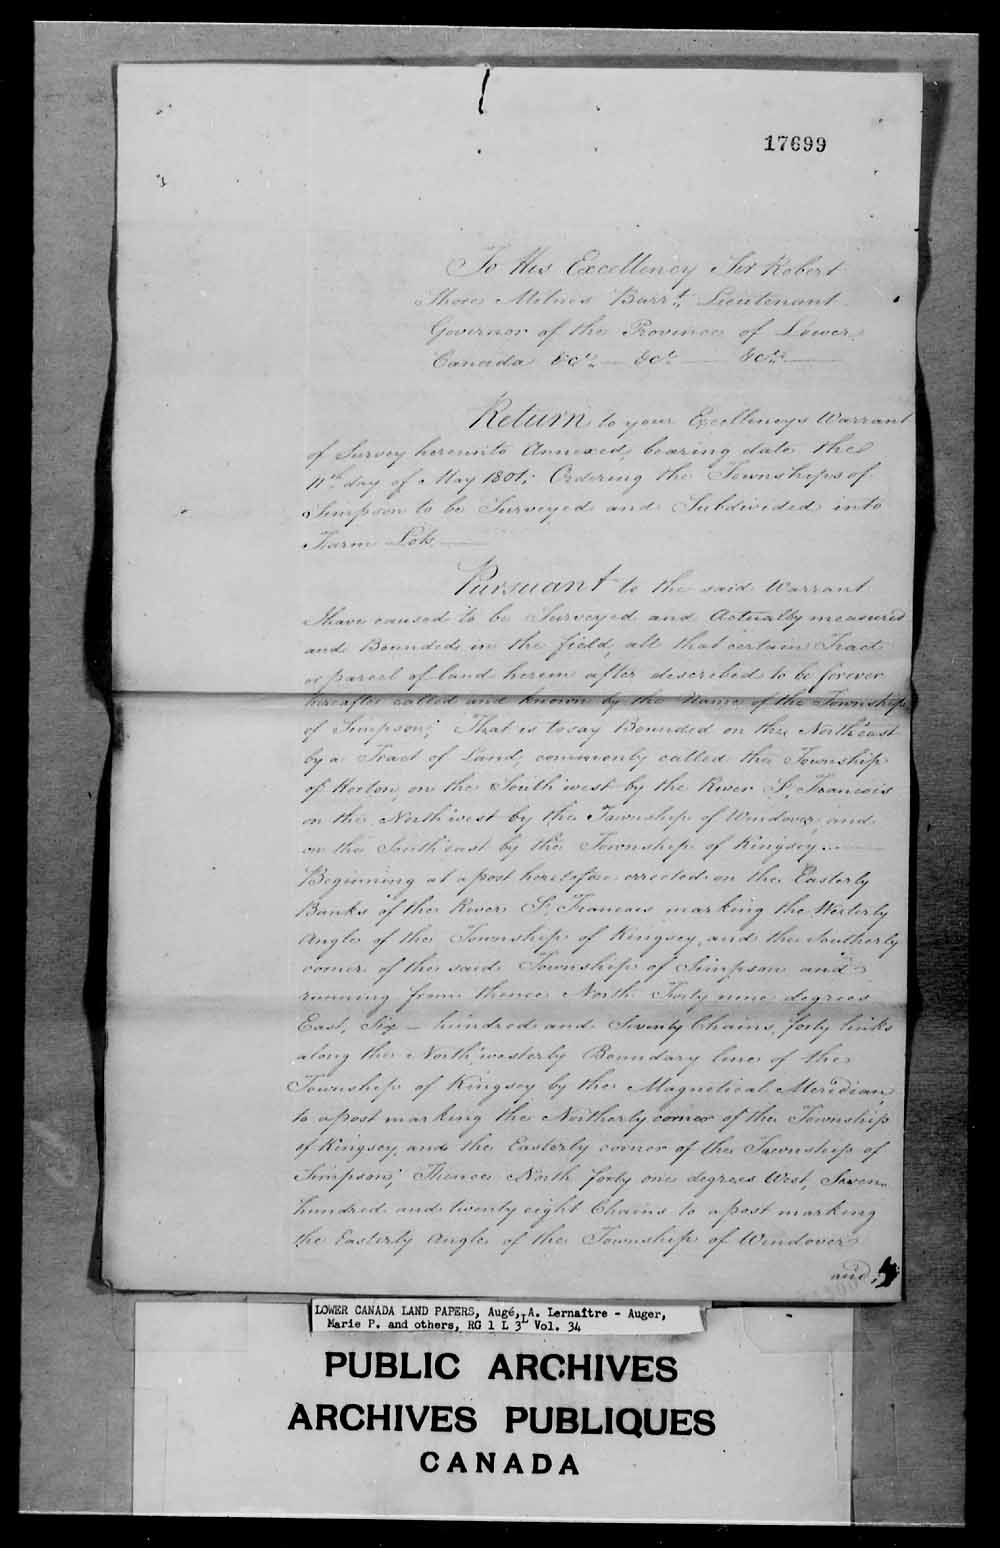 17699
To His Excellency Sir Robert
Shore Milnes Barrt. Lieutenant
Governor of the Province of Lower
Canada &ca. — &c. — &ca. —
Return to your Excellencys Warrant
of Survey hereunto Annexed, bearing date the
11th day of May 1801, Ordering the Townships of
Simpson to be Surveyed and Subdivided into
Farm Lots —
Pursuant to the said Warrant
I have caused to be Surveyed and Actually measured
and Bounded in the field, all that certain Tract
or parcel of land herein after described to be forever
hereafter called and known by the Name of the Township
of Simpson; That is to say Bounded on the North east
by a Tract of Land, commonly called the Township
of Horton, on the South west by the River St. Francois
on the North west by the Township of Windover, and
on the South east by the Township of Kingsey. —
Beginning at a post heretofore errected on the Easterly
Banks of the River St. Francois marking the Westerly
Angle of the Township of Kingsey, and the Southerly
corner of the said Township of Simpson and
running from thence North Forty nine degrees
East, Six — hundred and Seventy Chains, forty links
along the North westerly Boundary line of the
Township of Kingsey by the Magnetical Meridian,
to a post marking the Northerly corner of the Township
of Kingsey, and the Easterly corner of the Township of
Simpson; Thence North forty one degrees West, Seven
hundred and twenty eight Chains to a post marking
the Easterly Angle of the Township of Windover
and,
LOWER CANADA LAND PAPERS, Augé, A. Lernaître - Auger,
Marie P. and others, RG 1 L 3L Vol. 34
PUBLIC ARCHIVES
ARCHIVES PUBLIQUES
CANADA